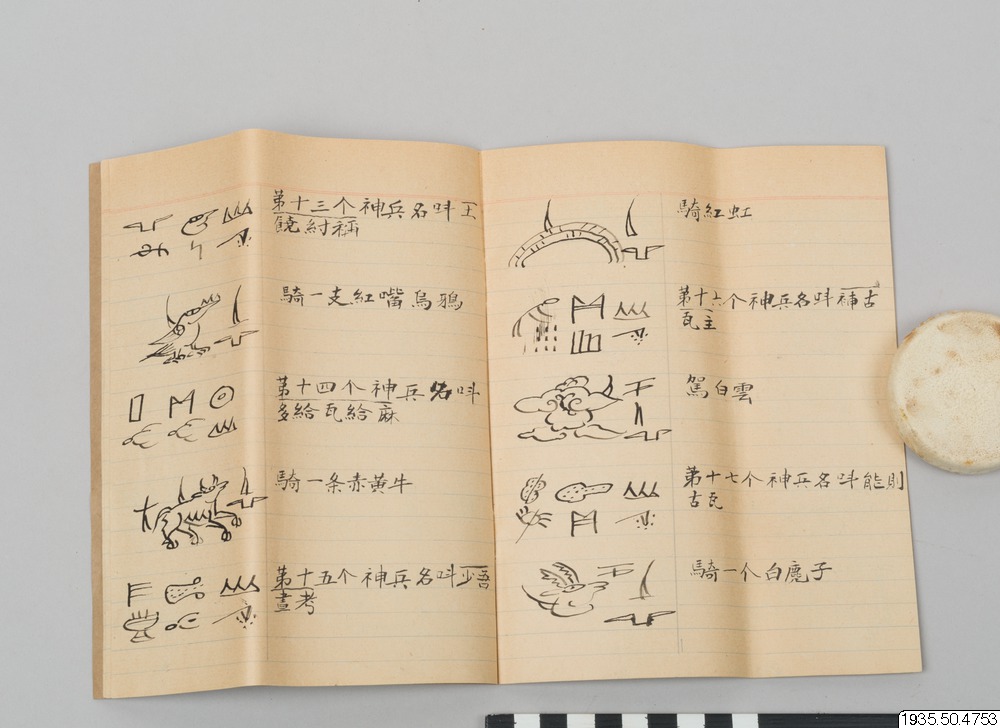 第十三个神兵名呌王
饒紂稱
騎一支紅嘴烏鴉
第十四个神兵名呌
多給瓦給麻
騎一条赤黃牛
第十五个神兵名呌少吾
畫考
騎紅虹
第十六个神兵名呌補古
瓦主
駕白雲
第十七个神兵名呌能則
古瓦
騎一个白鹿子
1935.50.4753